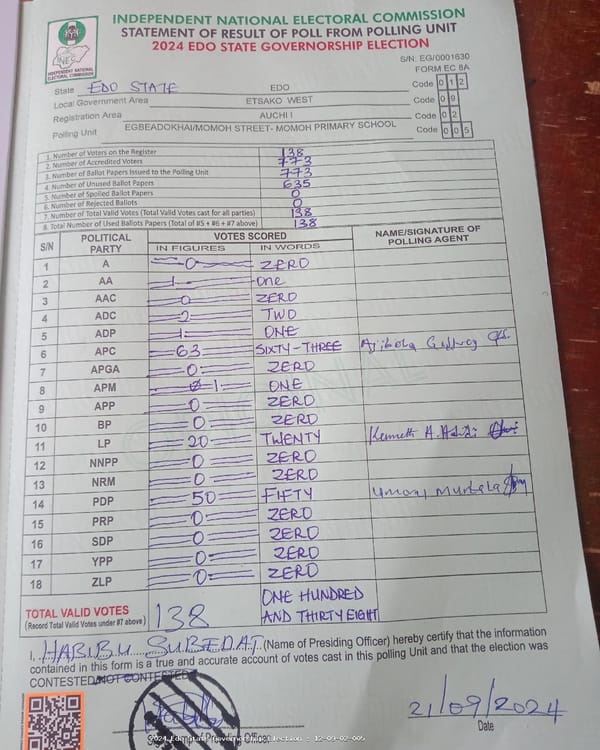 INDEPENDENT NATIONAL ELECTORAL COMMISSION
STATEMENT OF RESULT OF POLL FROM POLLING UNIT
2024 EDO STATE GOVERNORSHIP ELECTION
INEC
INDEPENDENT NATIONAL ELECTORAL COMMISSION
S/N: EG/0001630
FORM EC 8A
State EDO STATE EDO Code 0 1 2
Local Government Area ETSAKO WEST Code 0 9
Registration Area AUCHI I Code 0 2
Polling Unit EGBEADOKHAI/MOMOH STREET- MOMOH PRIMARY SCHOOL Code 0 0 5
1. Number of Voters on the Register 138
2. Number of Accredited Voters 773
3. Number of Ballot Papers Issued to the Polling Unit 773
4. Number of Unused Ballot Papers 635
5. Number of Spoiled Ballot Papers 0
6. Number of Rejected Ballots 0
7. Number of Total Valid Votes (Total Valid Votes cast for all parties) 138
8. Total Number of Used Ballots Papers (Total of #5 + #6 + #7 above) 138
S/N POLITICAL PARTY VOTES SCORED NAME/SIGNATURE OF POLLING AGENT
IN FIGURES IN WORDS
1 A 0 ZERO
2 AA 1 One
3 AAC 0 ZERO
4 ADC 2 TWO
5 ADP 1 ONE
6 APC 63 SIXTY-THREE Ajibola
7 APGA 0 ZERO
8 APM 0 1 ONE
9 APP 0 ZERO
10 BP 0 ZERO
11 LP 20 TWENTY Kenneth
12 NNPP 0 ZERO
13 NRM 0 ZERO
14 PDP 50 FIFTY Umoru Murtala
15 PRP 0 ZERO
16 SDP 0 ZERO
17 YPP 0 ZERO
18 ZLP 0 ZERO
TOTAL VALID VOTES 138 ONE HUNDRED AND THIRTY EIGHT
(Record Total Valid Votes under #7 above)
I, HABIBU SUBEDAT (Name of Presiding Officer) hereby certify that the information
contained in this form is a true and accurate account of votes cast in this polling Unit and that the election was
CONTESTED/NOT CONTESTED
21/09/2024
Date
2024 Edo State Governorship Election - 12-09-02-005